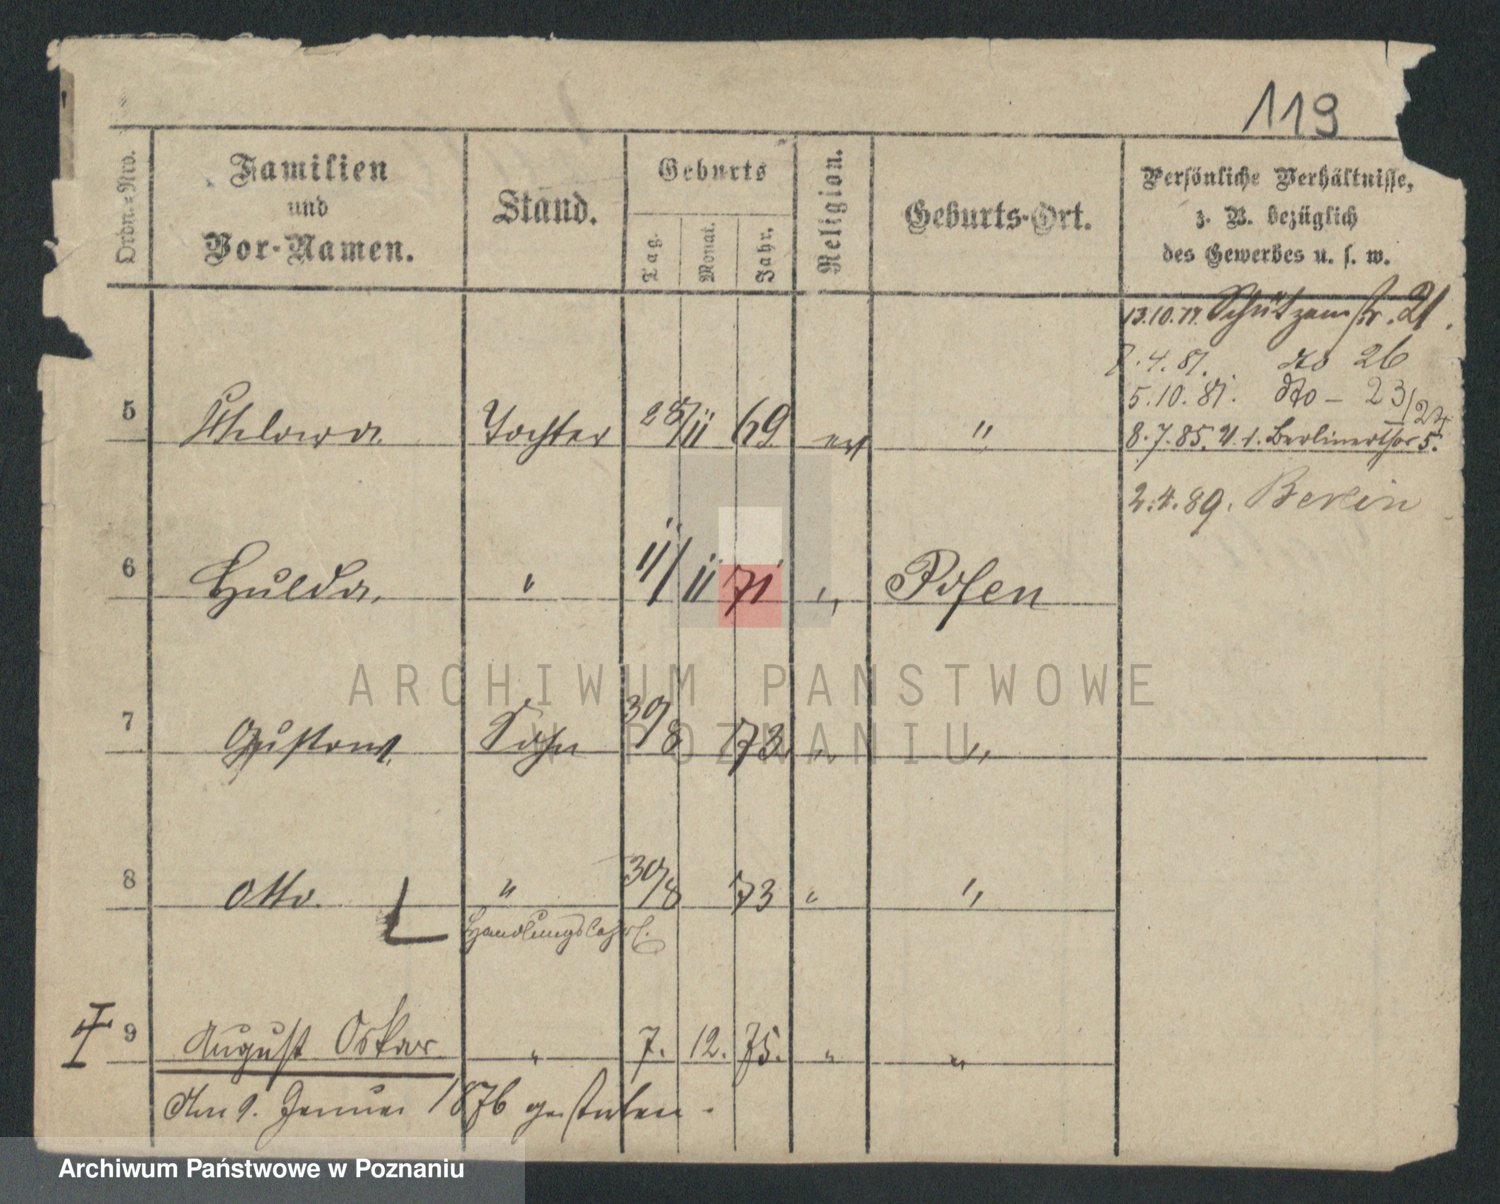 119
Ordn.-Nro.
Familien
und
Vor-Namen.
Stand.
Geburts
Tag.
Monat.
Jahr.
Religion.
Geburts-Ort.
Persönliche Verhältnisse,
z. B. bezüglich
des Gewerbes u. s. w.
13.10.77. Schützenstr. 21.
8.4.81. do 26
5.10.81. do – 23/24
5 Tochter 28/11 69 "
8.7.85. Berlinerthor 5.
2.4.89. Berlin
6 Hulda. " 11/11 71 " Posen
7 Gustav. Sohn 30/8 73 " "
8 Otto. " 30/8 73 " "
Handlungslehrl.
9 August Oskar " 7. 12. 75. " "
Am 9. Januar 1876 gestorben.
ARCHIWUM PAŃSTWOWE
W POZNANIU
Archiwum Państwowe w Poznaniu